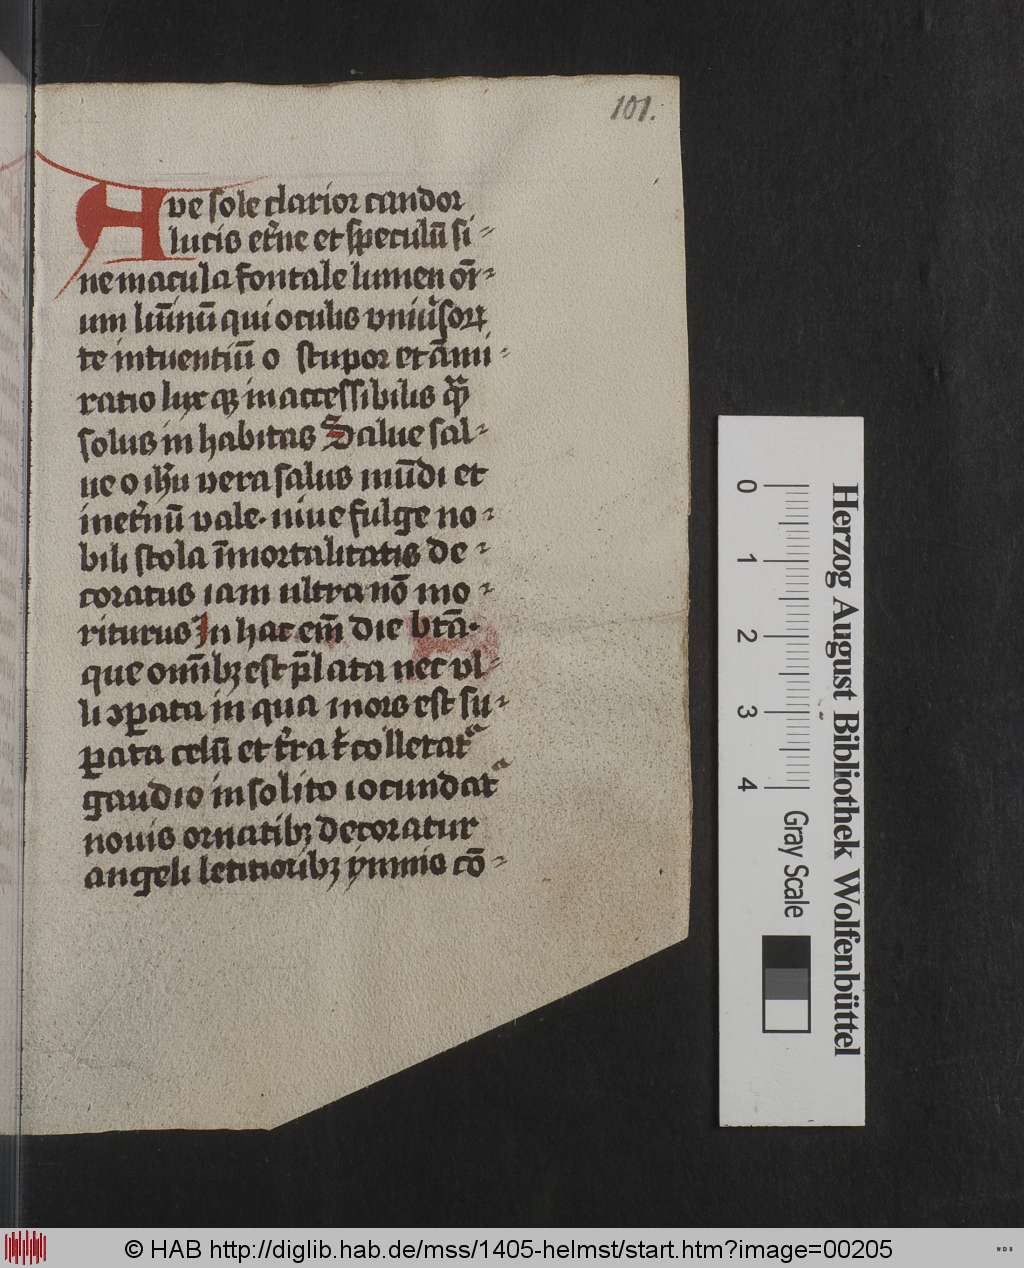 101.
Ave sole clarior candor
lucis et̃ne et speculũ si-
ne macula fontale lumen om̃-
um lũinũ qui oculis vniũsoꝝ
te intuentiũ o stupor et ãmi-
ratio lux qꝫ in accessibilis
solus in habitas Salue sal-
ue o ihũ vera salus mũdi et
inet̃nũ vale· niue fulge no-
bili stola ĩmortalitatis de-
coratus iam ultra nõ mo-
riturus In hac em̃ die btã·
que om̃ibꝫ est p̃lata nec vl-
li ꝯꝑata in qua mors est su-
ꝑata celũ et t̃ra
gaudio insolito iocundat᷑
nouis ornatibꝫ decoratur
angeli letitioribꝫ ymnis cõ-
Herzog August Bibliothek Wolfenbüttel
0 1 2 3 4
Gray Scale
© HAB http://diglib.hab.de/mss/1405-helmst/start.htm?image=00205